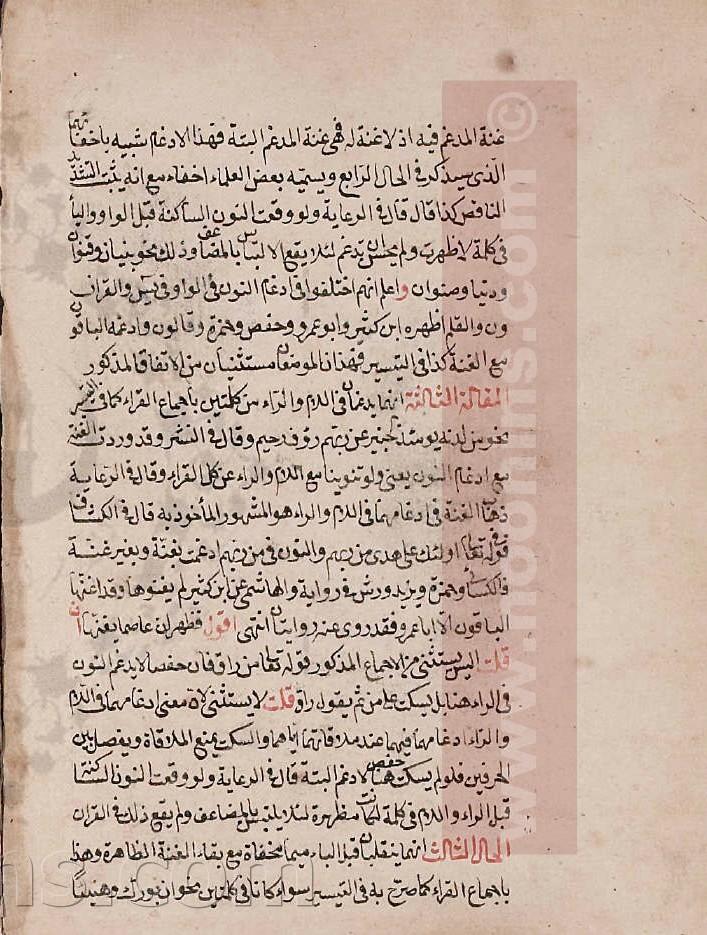 غنة المدغم فيه اذ لا غنة له فهى غنة المدغم البتة فهذا الادغام شبيه باخفائهما
الذى سيذكر فى الحال الرابع ويسميه بعض العلماء اخفاء مع انه يثبت التشديد
الناقص كذا قال قال فى الرعاية ولو وقعت النون الساكنة قبل الواو والياء
فى كلمة لاظهرت ولم يحسن ان تدغم لئلا يقع الالتباس بالمضاعف وذلك نحو بنيان وقنوان
ودنيا وصنوان واعلم انهم اختلفوا فى ادغام النون فى الواو فى يس والقران
ون والقلم اظهره ابن كثير وابو عمرو وحفص وحمزة وقالون وادغمه الباقون
مع الغنة كذا فى التيسير فهذان الموضعان مستثنيان من الاتفاق المذكور
المقالة الثالثة انهما يدغمان فى اللام والراء من كلمتين باجماع القراء كما فى
نحو من لدنه يومئذ لخبير عن ربهم رؤف رحيم وقال فى النشر وقد وردت الغنة
مع ادغام النون يعنى ولو تنوينا مع اللام والراء عن كل القراء وقال فى الرعاية
ذهاب الغنة فى ادغامهما فى اللام والراء هو المشهور المأخوذ به قال فى الكشاف
فى قوله تعالى اولئك على هدى من ربهم والنون فى من ربهم ادغمت بغنة وبغير غنة
فالكسائى وحمزة ويزيد وورش فى رواية والهاشمى عن ابن كثير لم يغنوها وقد اغنها
الباقون الا ابا عمرو فقد روى عنه روايتان انتهى اقول فظهر ان عاصما يغنها
قلت اليس يستثنى من الاجماع المذكور قوله تعالى من راق فان حفصا لا يدغم النون
فى الراء هنا بل يسكت على من ثم يقول راق قلت لا يستثنى لان معنى ادغامهما فى اللام
والراء ادغامهما فيهما عند ملاقاتهما اياهما والسكت يمنع الملاقاة ويفصل بين
الحرفين فلو لم يسكت حفص هنا لادغم البتة قال فى الرعاية ولو وقعت النون الساكنة
قبل الراء واللام فى كلمة لكانت مظهرة لئلا يلتبس بالمضاعف ولم يقع ذلك فى القران
الحال الثالث انهما ينقلبان قبل الباء ميما مخفاة مع بقاء الغنة الظاهرة وهذا
باجماع القراء كما صرح به فى التيسير سواء كانا فى كلمتين نحو ان بورك وهنيئا
www.noorlhs.com ©
ns.com